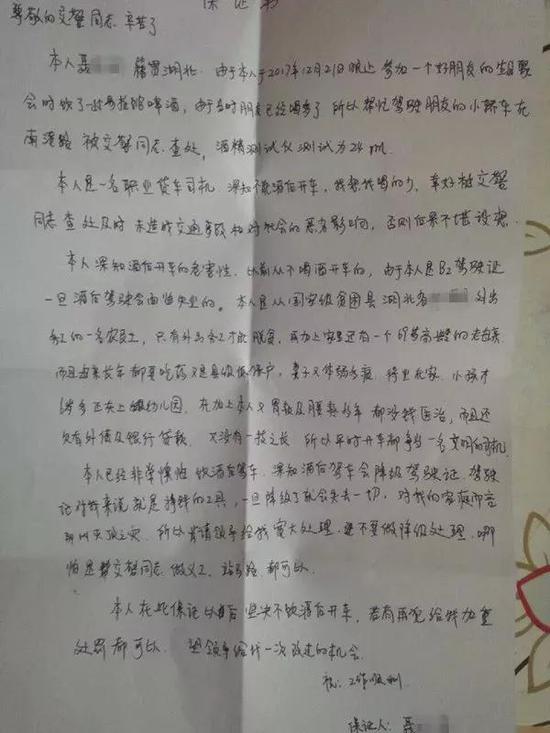 保证书
尊敬的交警同志 辛苦了
本人聂 籍贯湖北. 由于本人于2017年12月21日晚上参加一个好朋友的生日聚
会时饮了一杯 啤酒, 由于当时朋友已经喝多了 所以帮忙驾驶朋友的小轿车在
南港路 被交警同志查处, 酒精测试仪测试为24 ml.
本人是一名职业货车司机 深知不能酒后开车, 我想我喝的少, 幸好被交警
同志查处及时 未造成交通事故和对社会的恶劣影响, 否则后果不堪设想.
本人深知酒后开车的危害性. 以前从不喝酒开车的, 由于本人是B2驾驶证
一旦酒后驾驶会面临失业的. 本人是从国家级贫困县湖北省 外出
务工的一名农民工, 只有外出务工才能脱贫, 再加上家里还有一个 岁高龄的老母亲
而且母亲长年都要吃药又是县级低保户, 妻子又体弱多病, 待业在家. 小孩才
岁多正在上幼儿园. 在加上本人又胃款及腰 多年 都没钱医治, 而且还
欠有外债及银行贷款, 又没有一技之长 所以平时开车都争当一名文明的司机
本人已经非常懊悔 饮酒后驾车. 深知酒后驾车会降级驾驶证. 驾驶
证对我来说就是挣钱的工具, 一旦降级了就会失去一切, 对我的家庭而言
那以灭顶之灾. 所以肯请领导给我宽大处理, 要不要做降级处理. 哪
怕是替交警同志做义工, 站马路 都可以.
本人在此保证以后坚决不饮酒后开车, 若有再犯给我加重
处罚都可以. 望领导给我一次改过的机会.
祝: 工作顺利
保证人: 聂